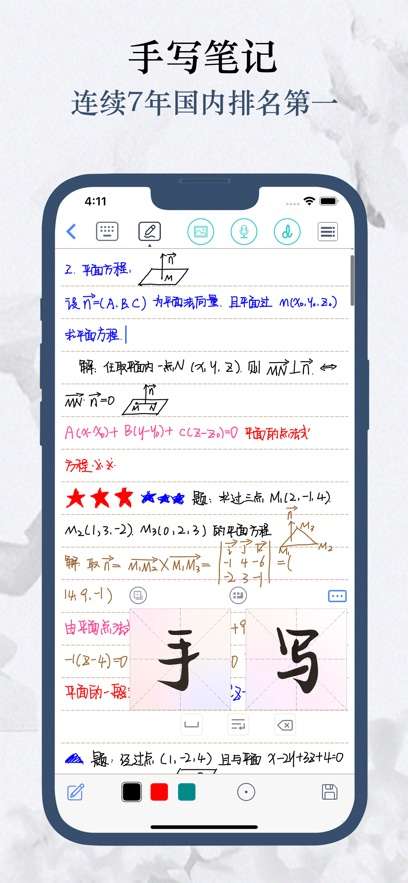 手写笔记
连续7年国内排名第一
4:11
2. 平面方程. n M
设n=(A,B,C) 为平面法向量. 且平面过 M(x₀,y₀,z₀)
求平面方程.
解: 任取平面内一点N (x,y,z). 则 MN⊥n. ⇔
MN·n=0 n M N
A(x-x₀)+B(y-y₀)+C(z-z₀)=0 平面的点法式
方程
★★★ ★★★ 题: 求过三点 M₁(2,-1,4).
M₂(-1,3,-2). M₃(0,2,3) 的平面方程 n M₃ M₁ M₂
解 取n= M₁M₂×M₁M₃= | i j k |
| -1 4 -6 | =(
| -2 3 -1 |
14,9,-1)
由平面点法式 +9
-1(z-4)=0 0
平面的一般
手 写
题: 经过点 (1,-2,4) 且与平面 x-2y+3z+4=0